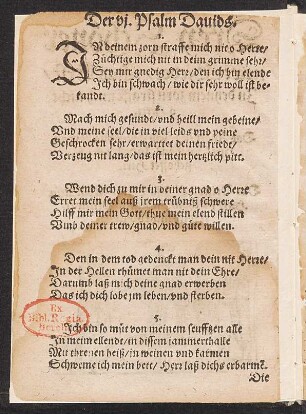 Der vj. Psalm Dauids.
1.
IN deinem zorn straffe mich nit o Herre/
Züchtige mich nit in deim grimme sehr/
Sey mir gnedig Herr/ den ich bin elende
Ich bin schwach/ wie dir sehr woll ist be-
kandt.
2.
Mach mich gesunde/ vnd heill mein gebeine/
Vnd meine seel/ die in viel leids vnd peine
Geschrocken sehr/ erwartet deinen friede/
Verzeug nit lang/ das ist mein hertzlich pitt.
3.
Wend dich zu mir in deiner gnad o Herre
Erret mein seel auß irem trübniß schwere
Hilff mir mein Gott/ thue mein elend stillen
Vmb deiner trew/ gnad/ vnd güte willen.
4.
Den in dem tod gedenckt man dein nit Herre/
In der Hellen rhümet man nit dein Ehre/
Darumb laß mich deine gnad erwerben
Das ich dich lobe im leben/ vnd sterben.
5.
Ich bin so müt von meinem seufftzen alle
In meim ellende/ in dissem jammerthalle
Mit threnen heiß/ in weinen vnd karmen
Schweme ich mein bett/ Herr laß dichs erbarmē.
Die
Ex
Bibl. Regia